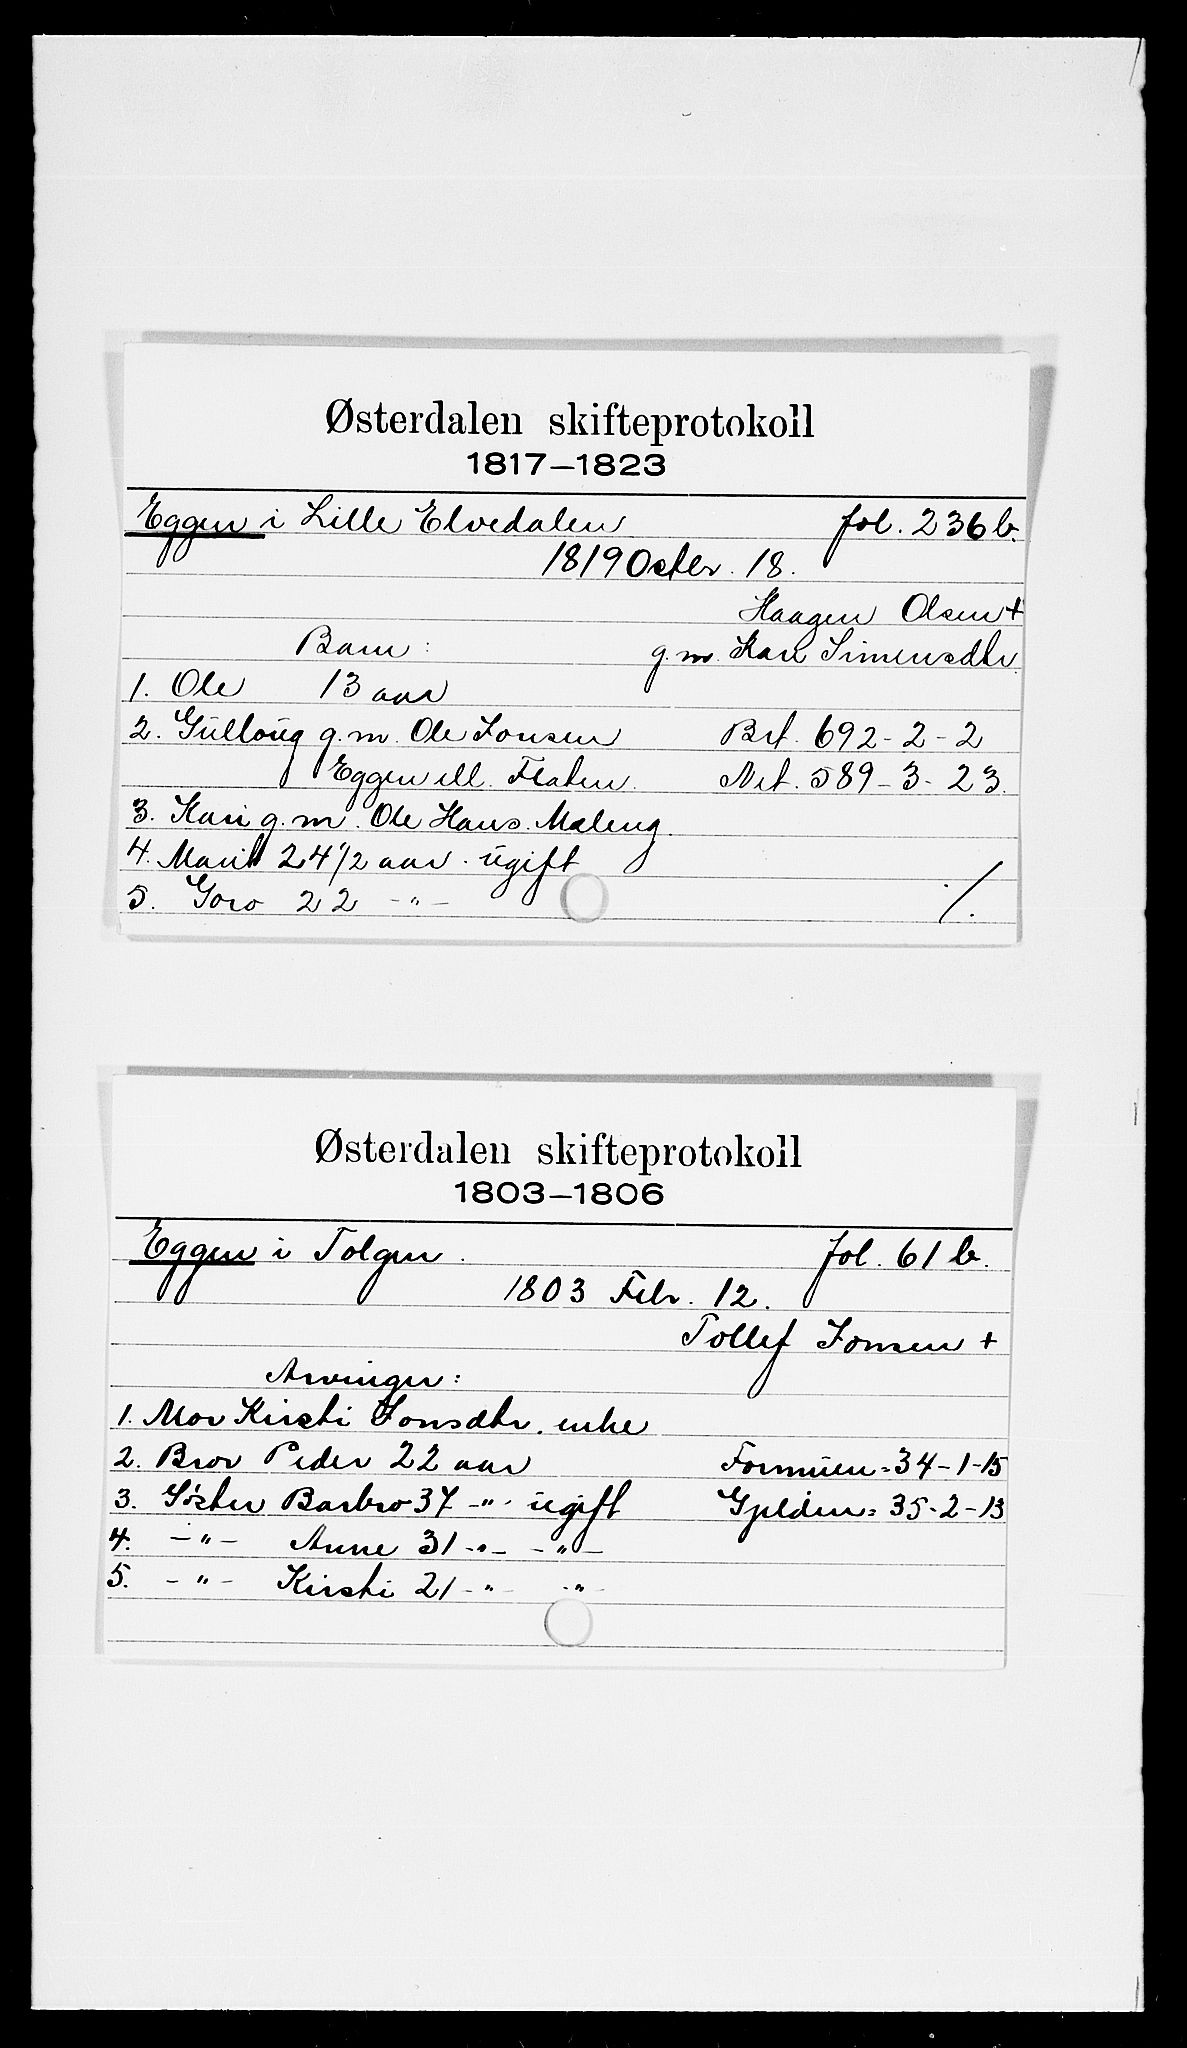 Østerdalen skifteprotokoll
1817–1823
Eggen i Lille Elvedalen fol. 236 b.
1819 Octbr. 18.
Haagen Olsen +
Barn: g. m. Kari Simensdtr.
1. Ole 13 aar
2. Gulloug g. m. Ole Jonsen Brt. 692-2-2
Eggen ell. Flaten. Net. 589-3-23.
3. Kari g. m. Ole Hans. Moleng.
4. Marit 24 1/2 aar. ugift
5. Goro 22 -"- ./.
Østerdalen skifteprotokoll
1803–1806
Eggen i Tolgen. fol. 61 b.
1803 Febr. 12.
Tollef Jonsen +
Arvinger:
1. Mor Kirsti Jonsdtr. enke
2. Bror Peder 22 aar Formuen = 34-1-15
3. Søster Barbro 37 -"- ugift Gjelden = 35-2-13
4. -"- Anne 31 -"- -"-
5. -"- Kirsti 21 -"- -"-